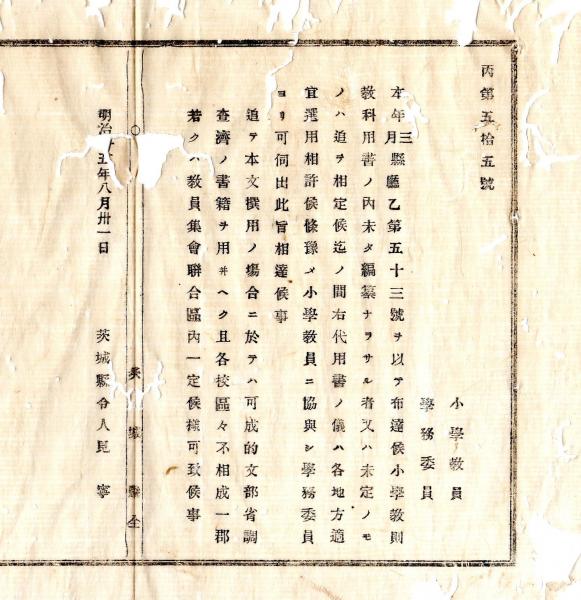 丙第五拾五號
小學敎員
學務委員
本年三月縣廳乙第五十三號ヲ以テ布達候小學敎則
敎科用書ノ内未タ編纂ナヲサル者又ハ未定ノモ
ノハ追ヲ相定候迄ノ間右代用書ノ儀ハ各地方適
宜撰用相許候條豫メ小學敎員ニ協與シ學務委員
ヨリ可伺出此旨相達候事
追テ本文撰用ノ塲合ニ於テハ可成的文部省調
査濟ノ書籍ヲ用ヰヘク且各校區々不相成一郡
若クハ敎員集會聯合區内一定候樣可致候事
明治十五年八月卅一日
茨城縣令人見寧
茨城縣